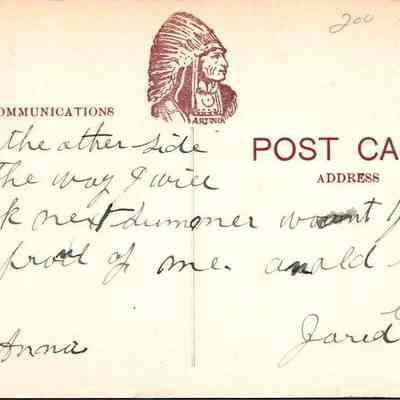 200
OMMUNICATIONS
POST CA
ADDRESS
the other side
The way I will
k next summer want
proud of me. an old
Anna
Jared